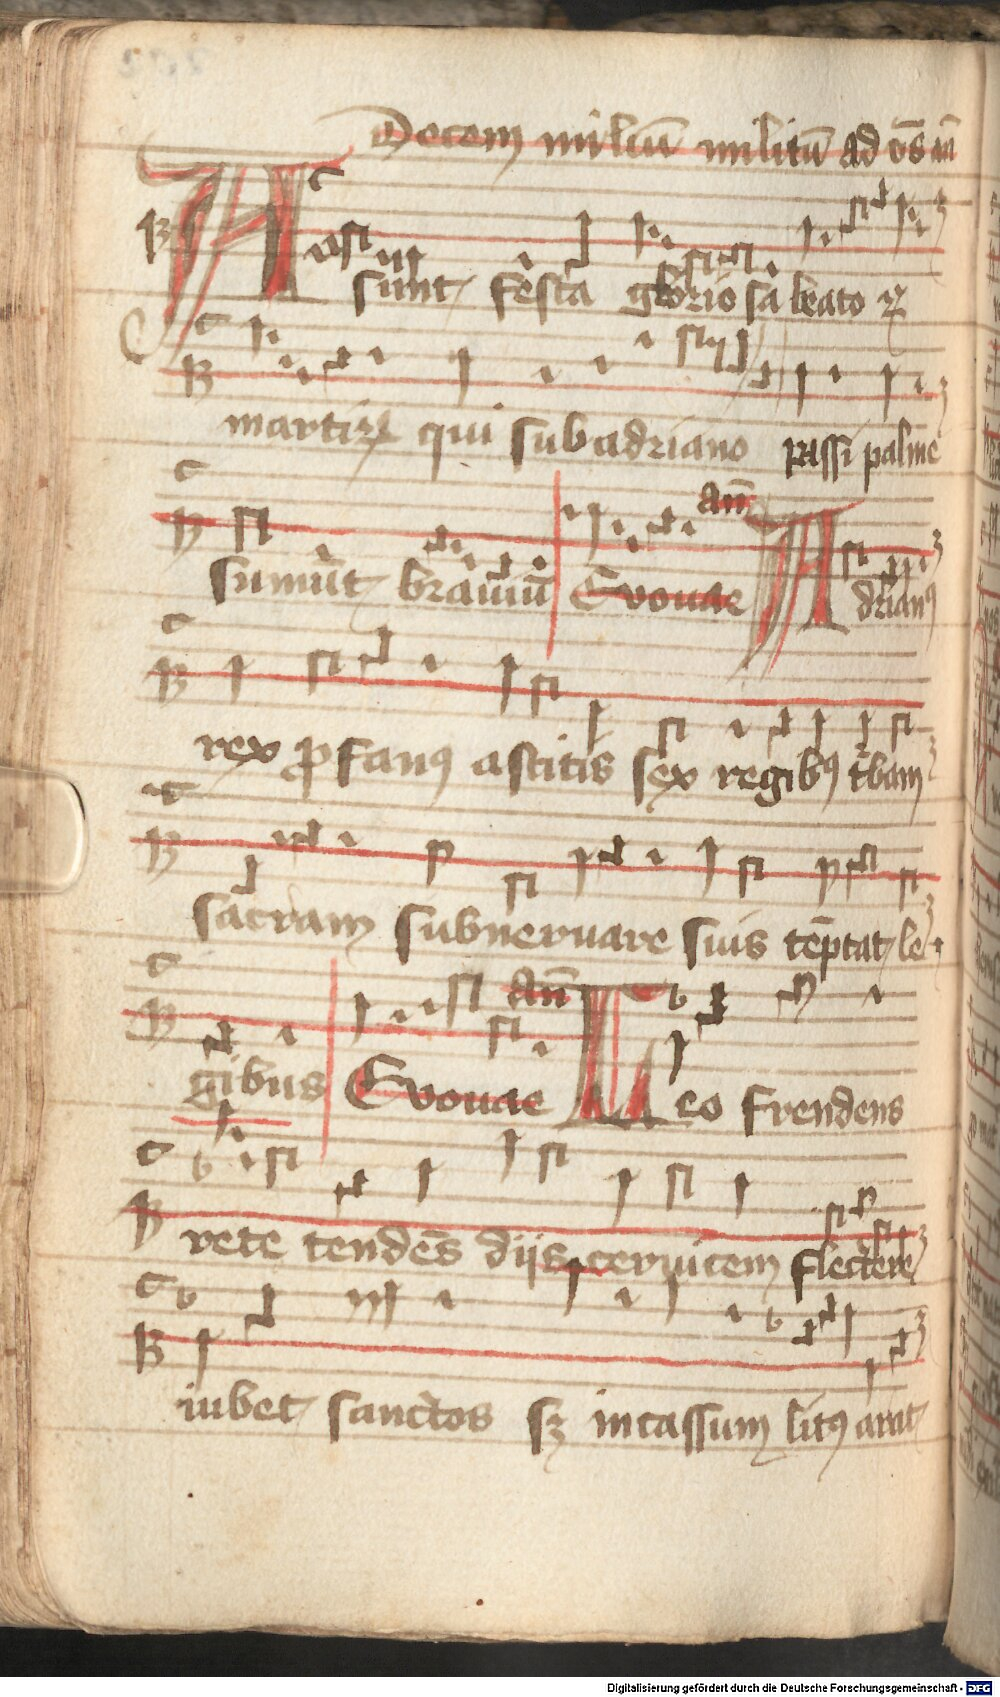 Decem miliū militū ad vs̄ añ
Assunt festa gloriosa beatoꝝ
martiꝝ qui sub adriano passi palme
sumūt brauiū Evouae añ Adrianꝯ
rex ꝓfanꝯ ascitis sex regibꝯ t̄bam
sacram subneruare suis tēptat le
gibus Evouae añ Leo frendens
rete tendēs dijs ceruicem flectere
iubet sanctos sꝫ incassum litꝯ arat
Digitalisierung gefördert durch die Deutsche Forschungsgemeinschaft - DFG